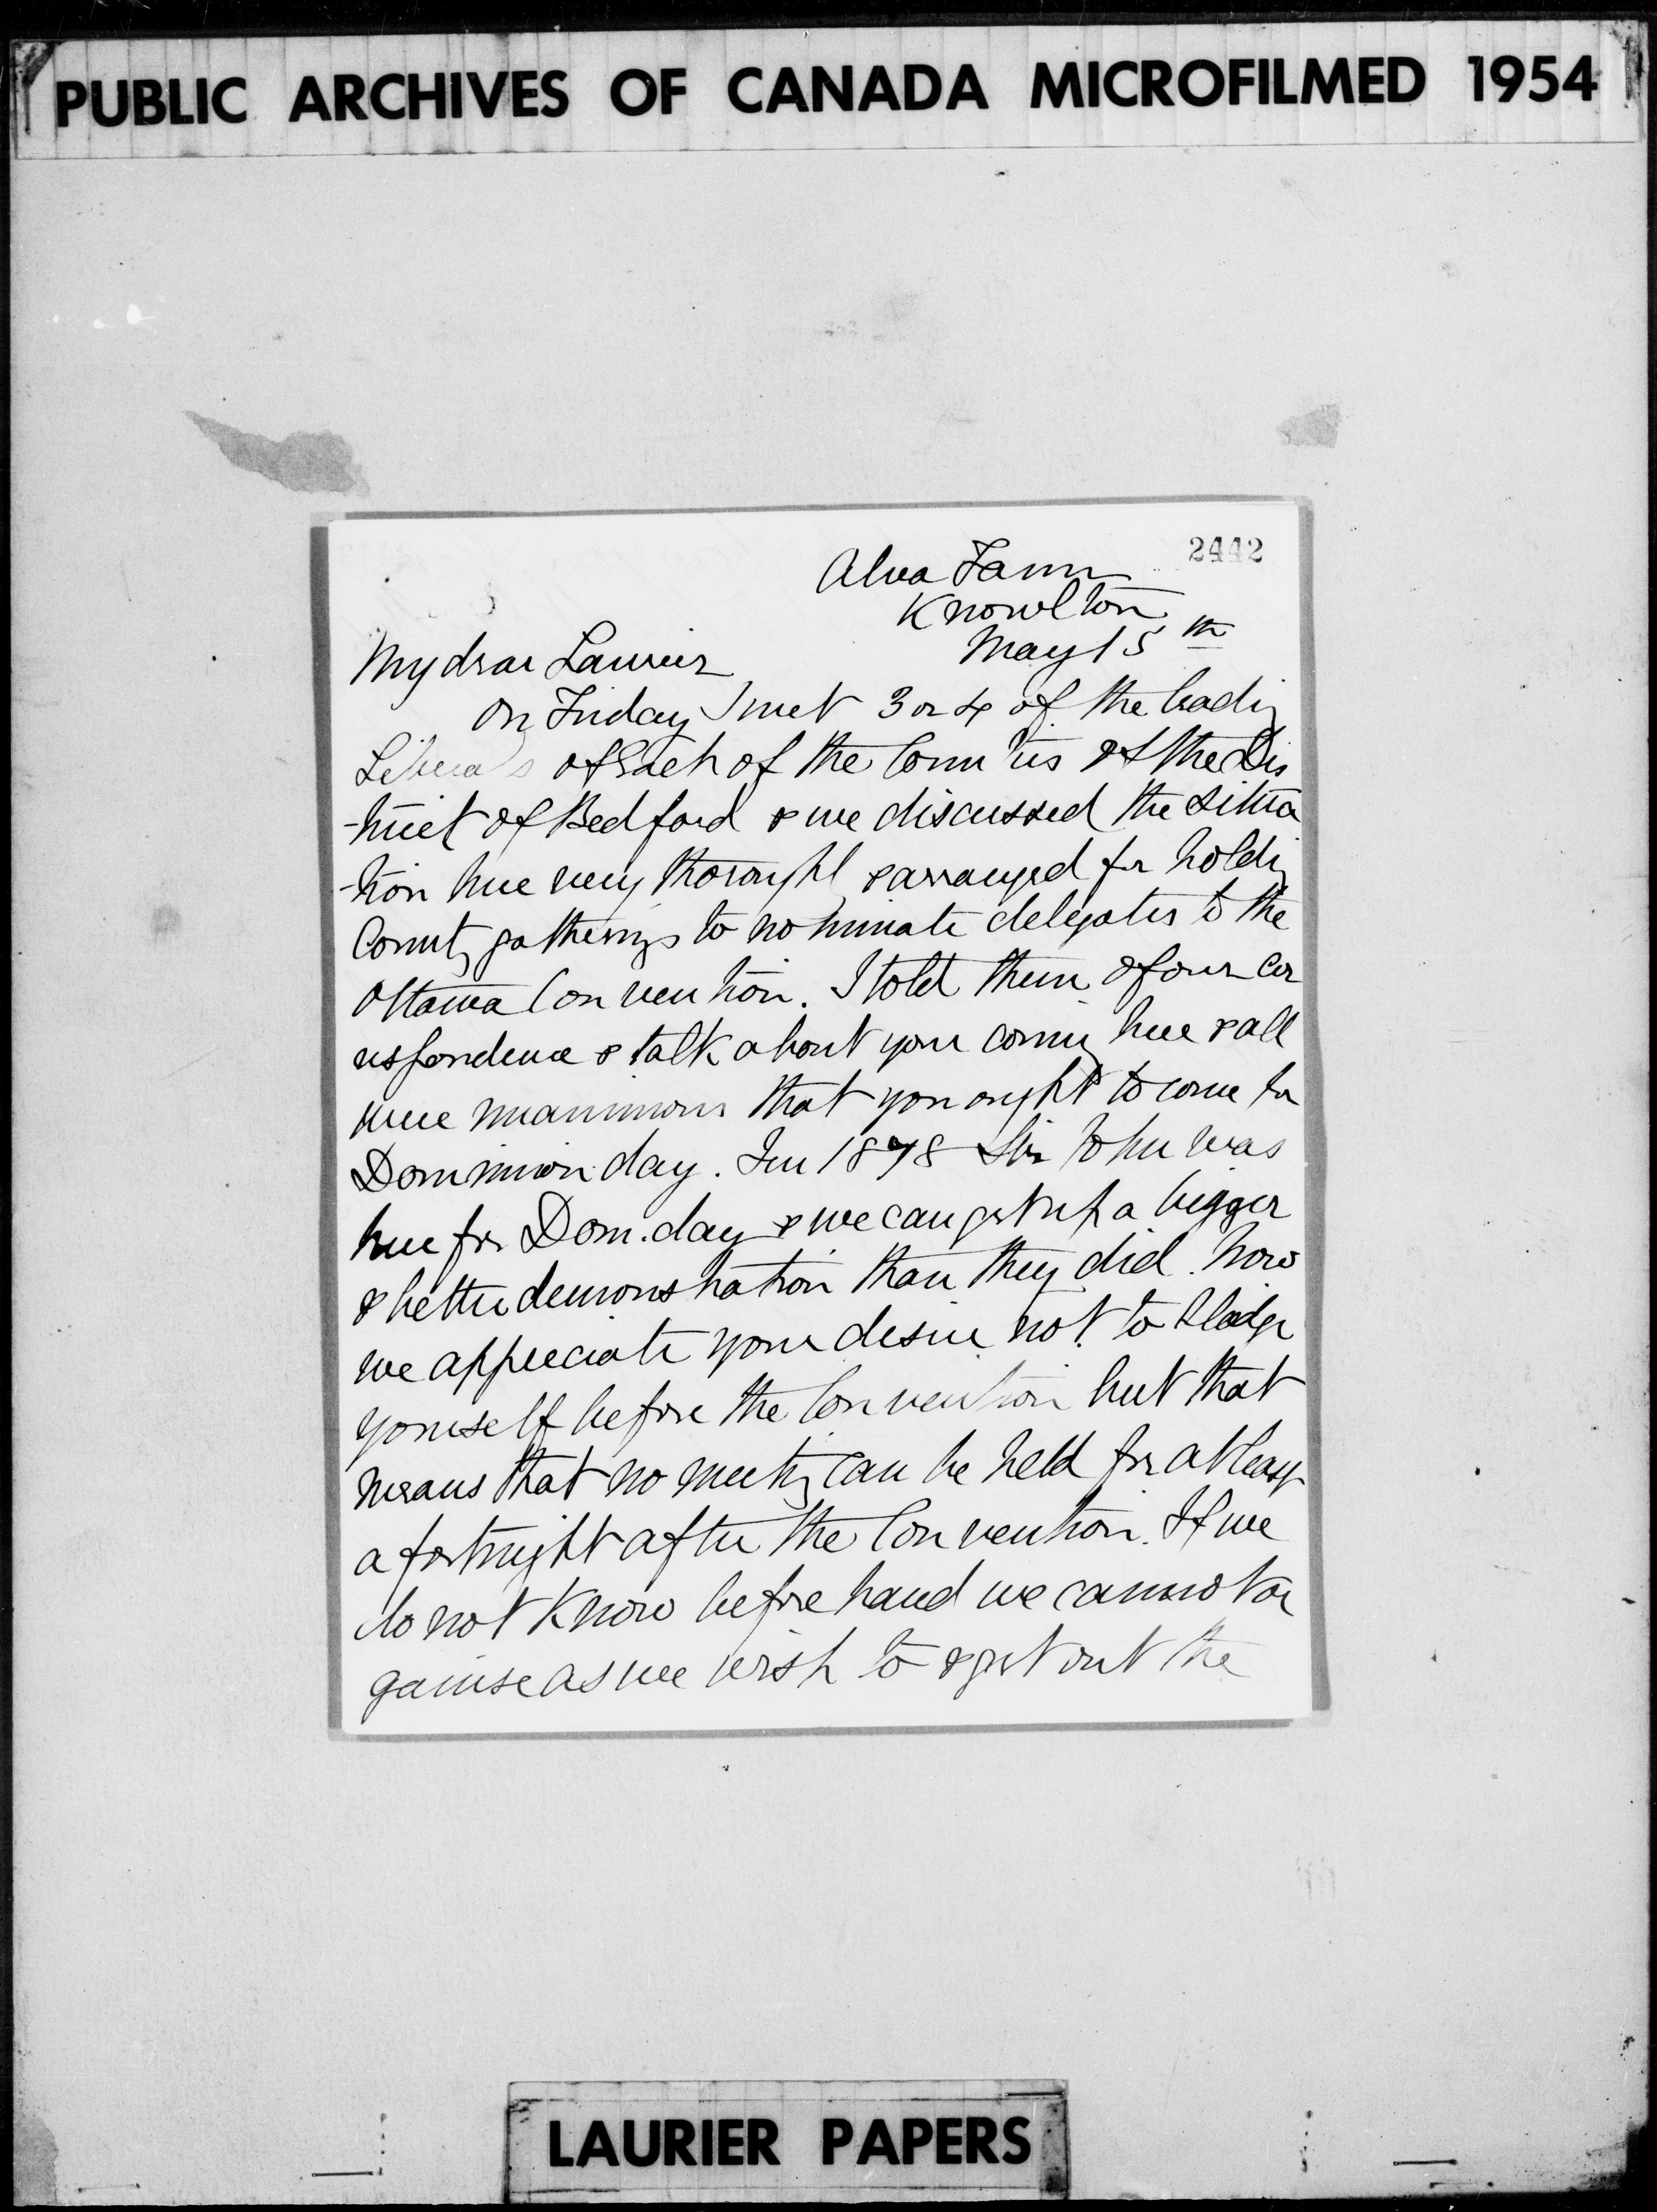 PUBLIC ARCHIVES OF CANADA MICROFILMED 1954
2442
Alva Farm
Knowlton
May 15th
My dear Laurier
On Friday I met 3 or 4 of the leading
Liberals of Each of the Counties of the Dis
-trict of Bedford & we discussed the situa
-tion here very thoroughly & arranged for holding
County gatherings to nominate delegates to the
Ottawa Convention. I told them of our cor
respondence & talk about you coming here & all
were unanimous that you ought to come for
Dominion day. In 1878 Sir John was
here for Dom. day & we can get up a bigger
& better demonstration than they did. Now
we appreciate your desire not to pledge
yourself before the Convention but that
means that no meeting can be held for at least
a fortnight after the Convention. If we
do not know before hand we cannot or
ganise as we wish to & get out the
LAURIER PAPERS